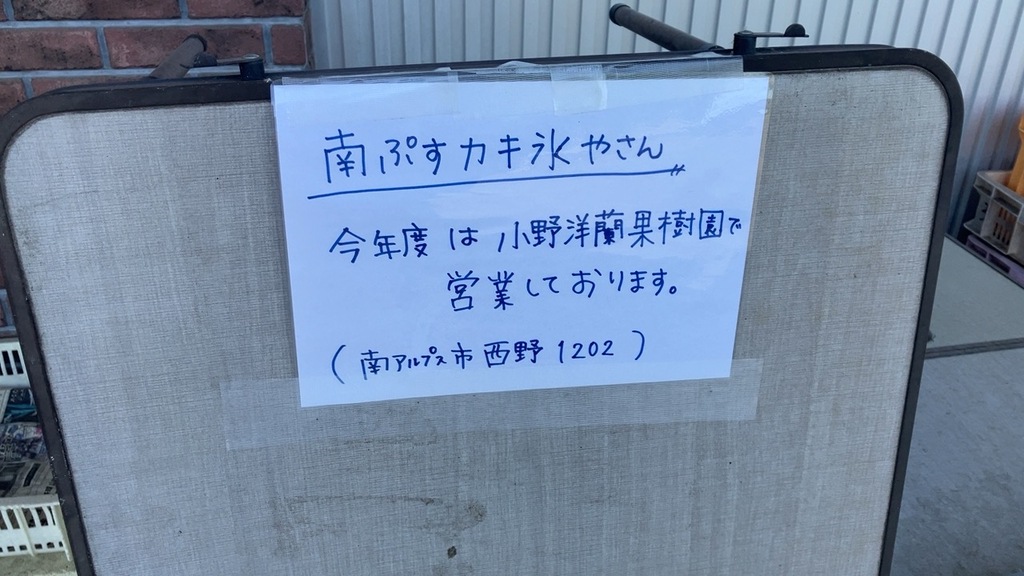 南ぷすカキ氷やさん
今年度は小野洋蘭果樹園で
営業しております。
(南アルプス市西野1202)